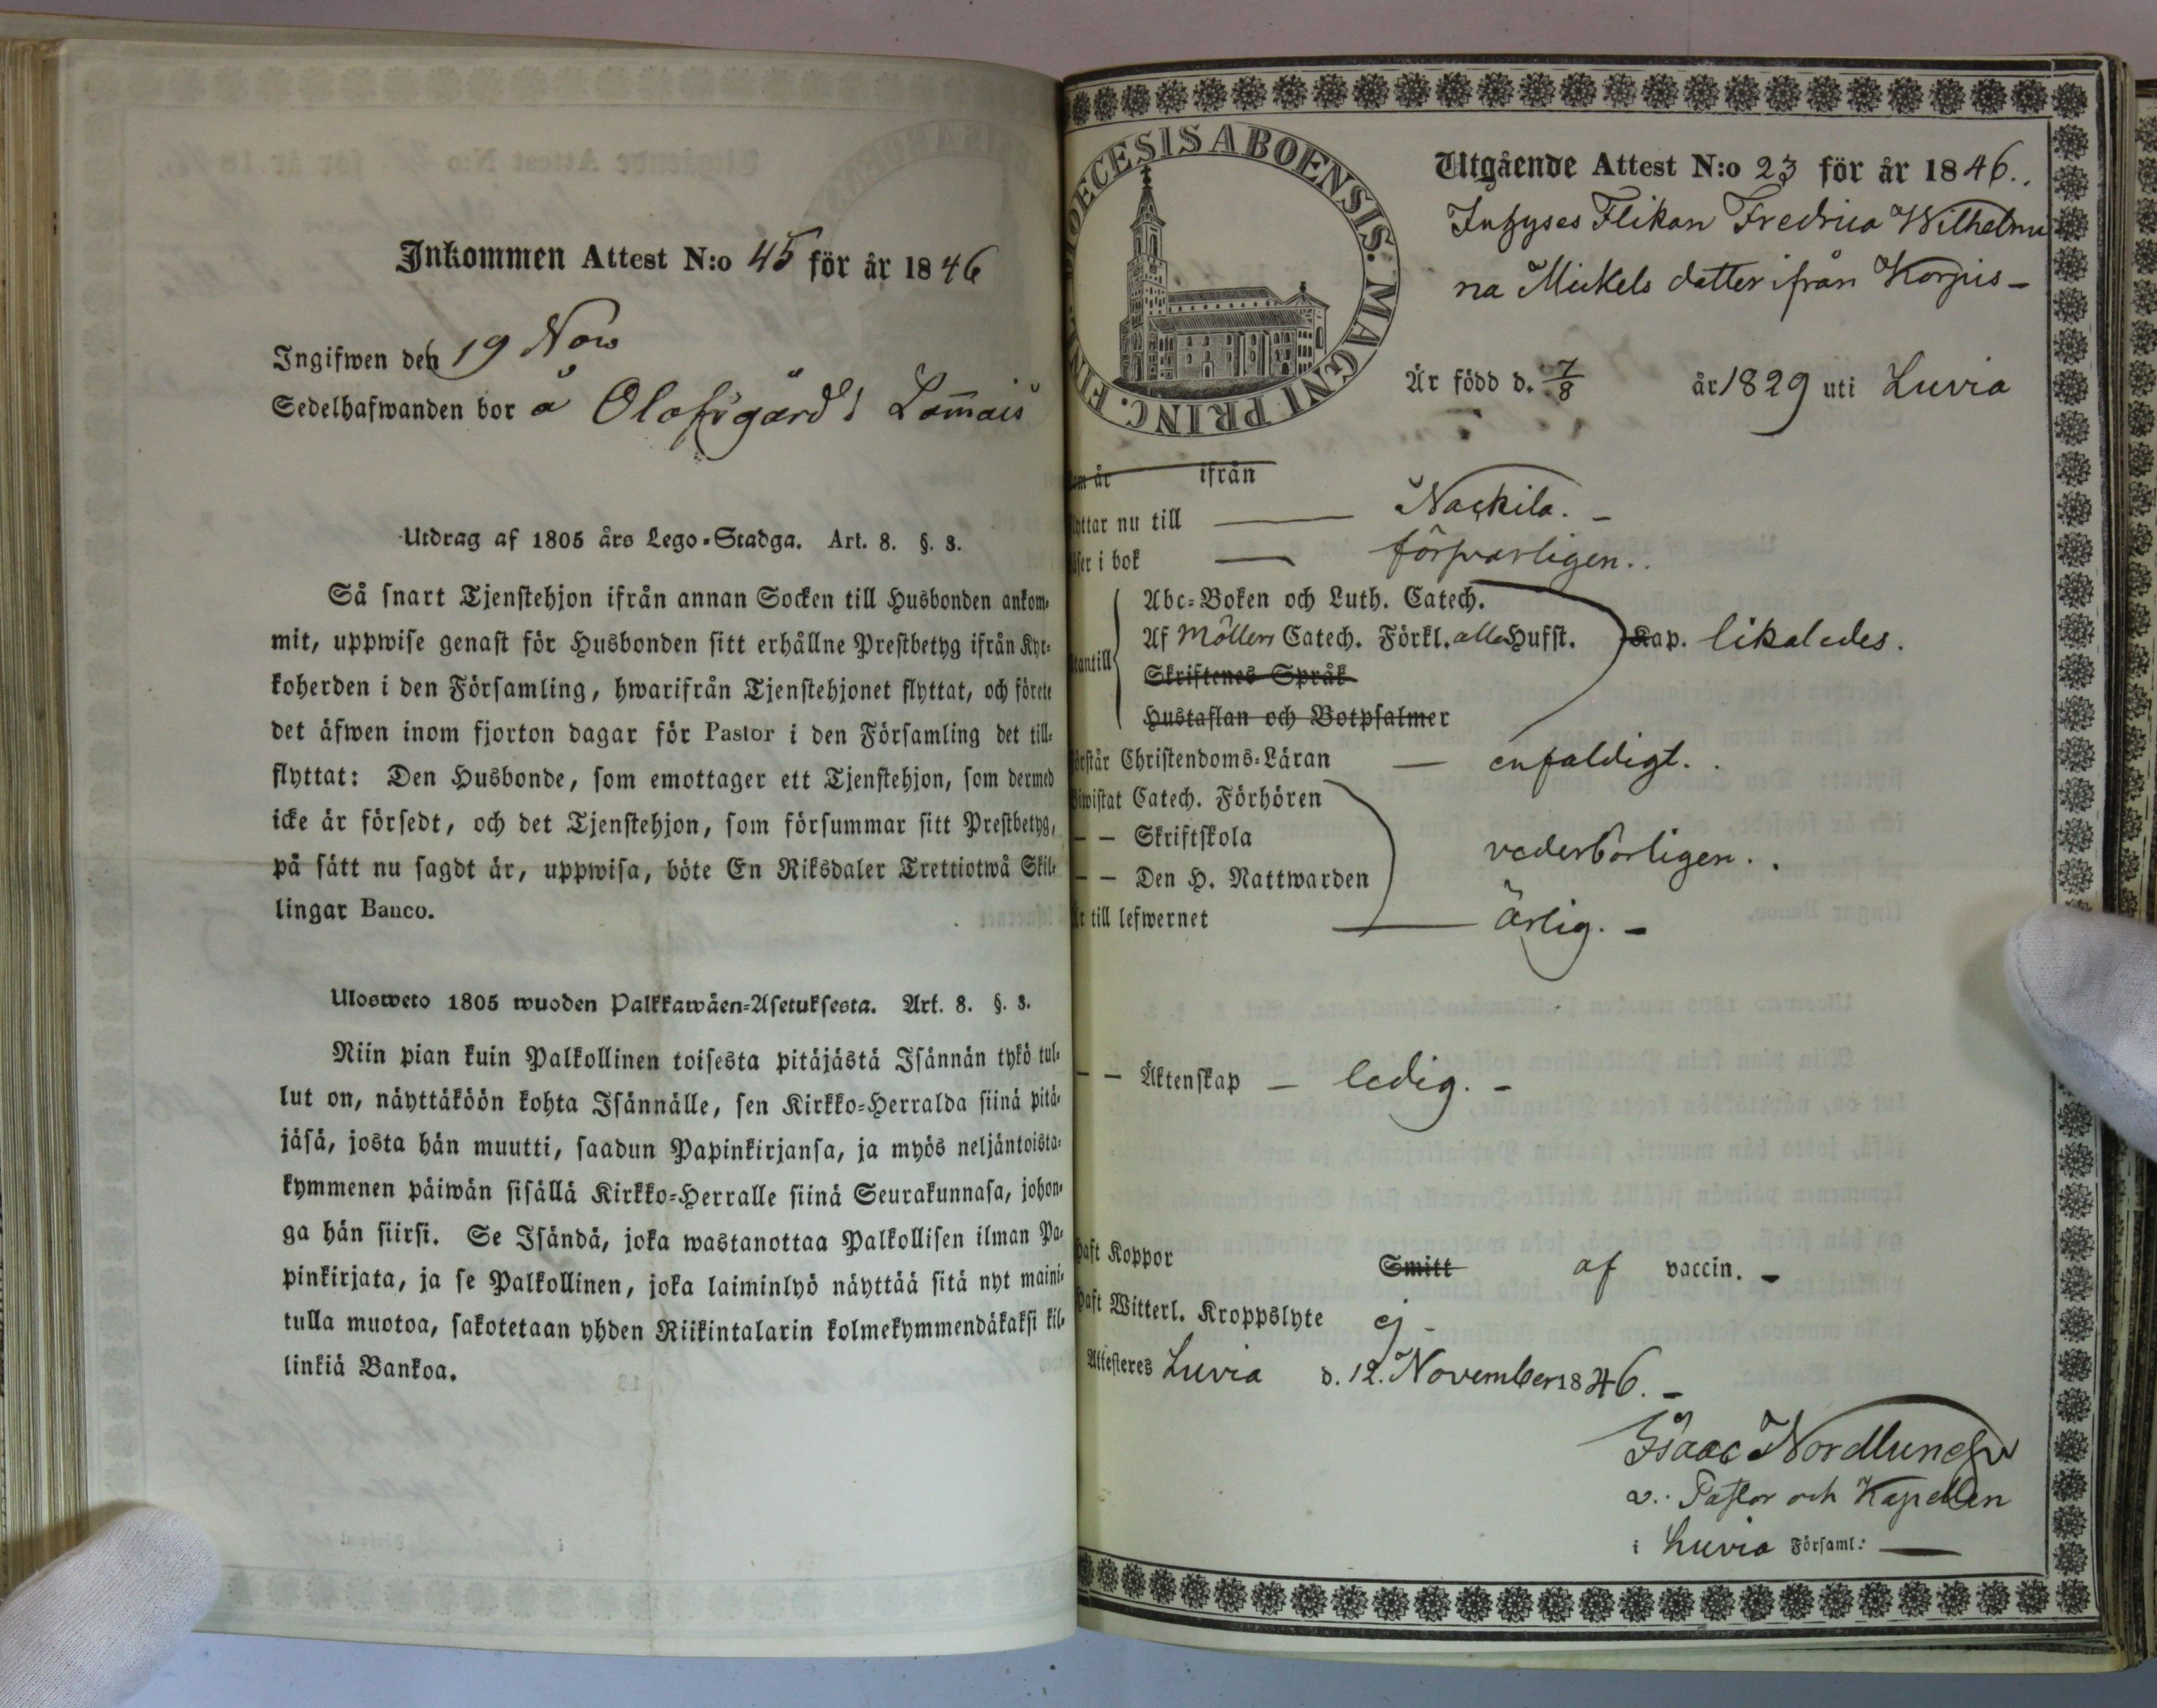 Inkommen Attest N:o 45 för år 1846
Ingifwen den 19 Nov
Sedelhafwanden bor å Olofsgård i Lammais
Utdrag af 1805 års Lego-Stadga. Art. 8. §. 3.
Så snart Tjenstehjon ifrån annan Socken till Husbonden ankom-
mit, uppwise genast för Husbonden sitt erhållne Prestbetyg ifrån Kyr-
koherden i den Församling, hwarifrån Tjenstehjonet flyttat, och förete
det äfwen inom fjorton dagar för Pastor i den Församling det till-
flyttat: Den Husbonde, som emottager ett Tjenstehjon, som dermed
icke är försedt, och det Tjenstehjon, som försummar sitt Prestbetyg,
på sätt nu sagdt är, uppwisa, böte En Riksdaler Trettiotwå Skil-
lingar Banco.
Ulosweto 1805 wuoden Palkkawäen-Asetuksesta. Art. 8. §. 3.
Niin pian kuin Palkollinen toisesta pitäjästä Isännän tykö tul-
lut on, näyttäköön kohta Isännälle, sen Kirkko-Herralda siinä pitä-
jäsä, josta hän muutti, saadun Papinkirjansa, ja myös neljäntoista-
kymmenen päiwän sisällä Kirkko-Herralle siinä Seurakunnasa, johon-
ga hän siirsi. Se Isändä, joka wastanottaa Palkollisen ilman Pa-
pinkirjata, ja se Palkollinen, joka laiminlyö näyttää sitä nyt maini-
tulla muotoa, sakotetaan yhden Riikintalarin kolmekymmendäkaksi kil-
linkiä Bankoa.
DIOECESIS ABOENSIS. MAGNI PRINC. FINL.
Utgående Attest N:o 23 för år 1846.
Inhyses Flikan Fredrica Wilhelmi
na Mickels dotter ifrån Korpis-
Är född d. 7/8 år 1829 uti Luvia
om år ifrån
yttar nu till — Nackila. -
äser i bok — försvarligen.
Abc-Boken och Luth. Catech.
tantill Af Möllers Catech. Förkl. alla Hufst. Kap. likaledes.
Skriftenes Språk
Hustaflan och Botpsalmer
örstår Christendoms-Läran — enfaldigt.
iwistat Catech. Förhören
— — Skriftskola vederbörligen.
— — Den H. Nattwarden
r till lefwernet — ärlig. -
— — Äktenskap — ledig. -
haft Koppor Smitt af vaccin. -
haft Witterl. Kroppslyte ej -
Attesteres Luvia d. 12. November 1846. -
Isaac Nordlund
v. Pastor och Kapellan
i Luvia Församl: —